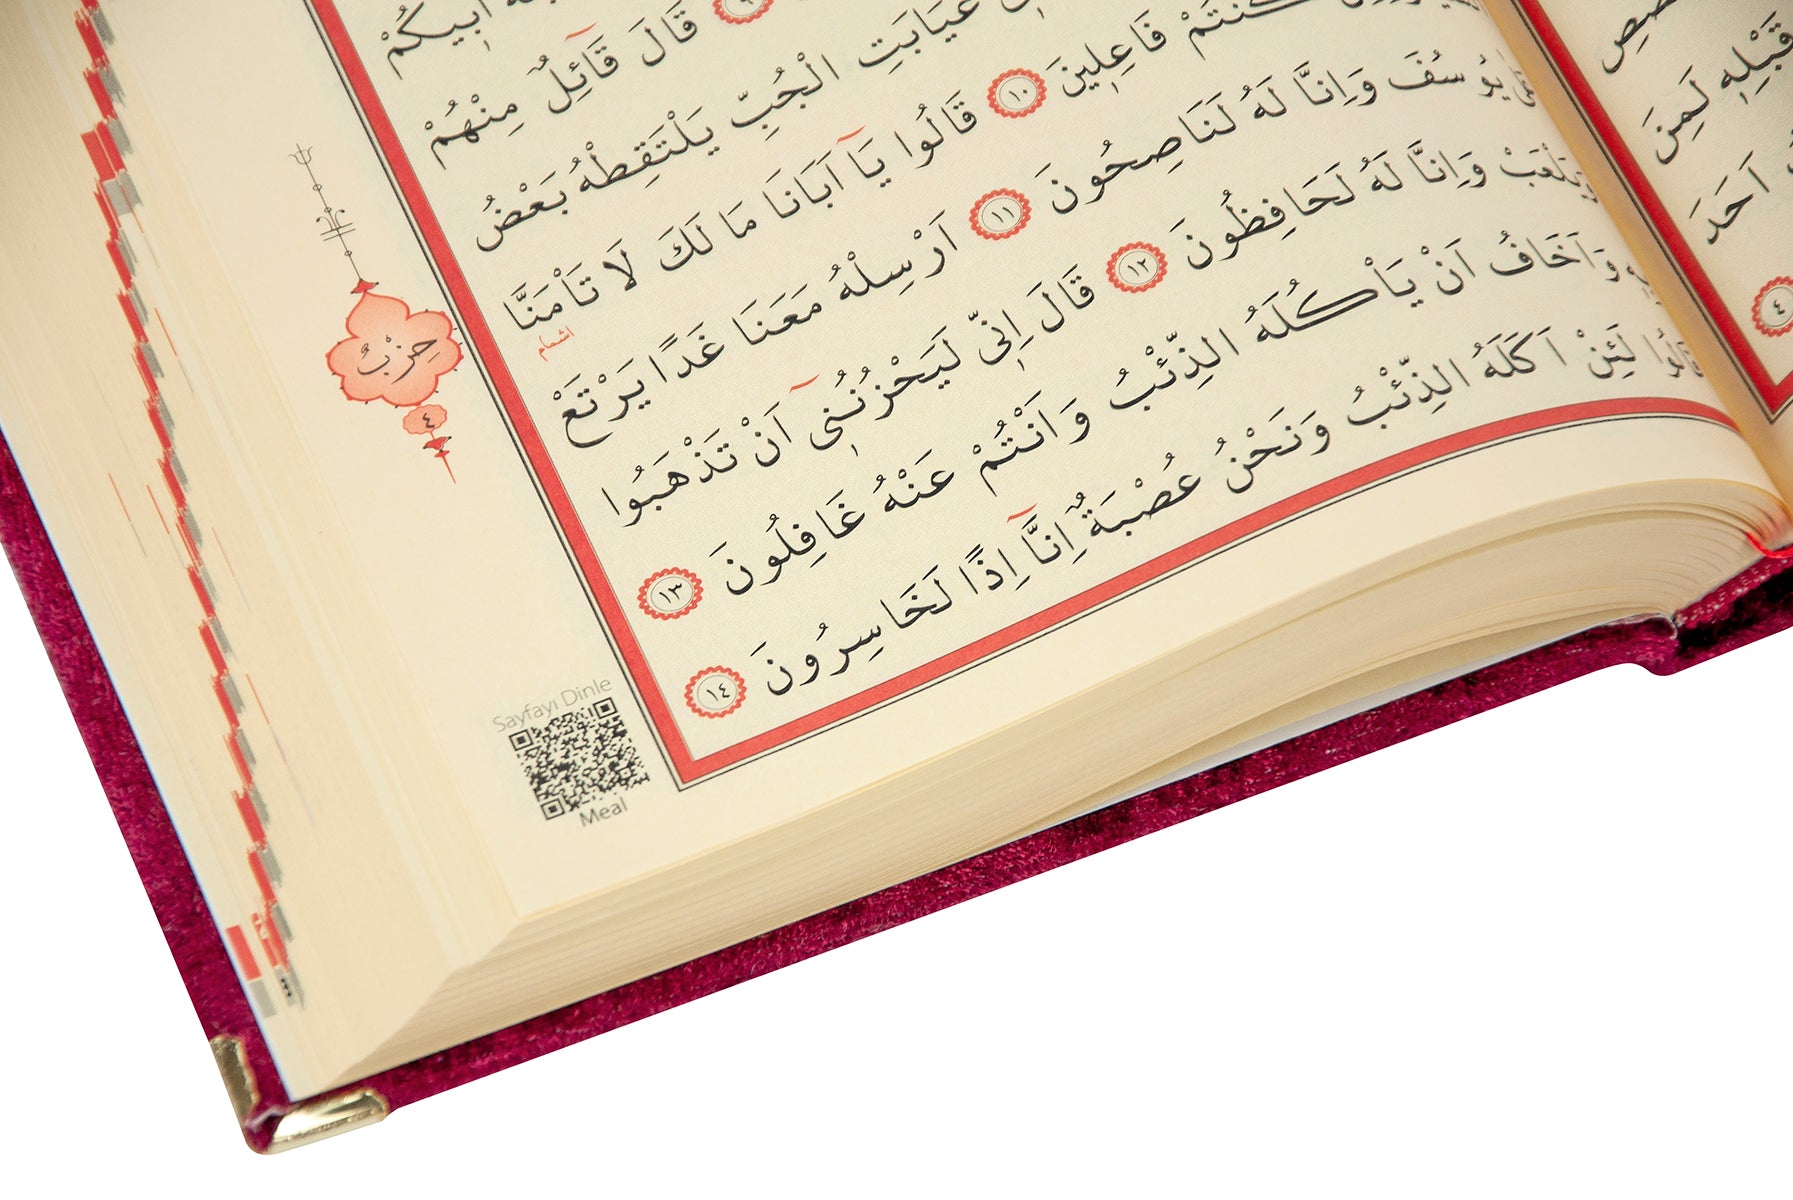 قَبْلِهِ لَمِنَ
اَحَدَ
٤
اَبِيكُمْ
٩ قَالَ قَٓائِلٌ مِنْهُمْ
غَيَابَتِ الْجُبِّ يَلْتَقِطْهُ بَعْضُ
كُنْتُمْ فَاعِلِينَ ١٠ قَالُوا يَٓا اَبَانَا مَا لَكَ لَا تَأْمَنَّا
اشمام
عَلٰى يُوسُفَ وَاِنَّا لَهُ لَنَاصِحُونَ ١١ اَرْسِلْهُ مَعَنَا غَدًا يَرْتَعْ
وَيَلْعَبْ وَاِنَّا لَهُ لَحَافِظُونَ ١٢ قَالَ اِنِّي لَيَحْزُنُنِٓي اَنْ تَذْهَبُوا
وَاَخَافُ اَنْ يَأْكُلَهُ الذِّئْبُ وَاَنْتُمْ عَنْهُ غَافِلُونَ ١٣
قَالُوا لَئِنْ اَكَلَهُ الذِّئْبُ وَنَحْنُ عُصْبَةٌ اِنَّٓا اِذًا لَخَاسِرُونَ ١٤
حِزْبٌ
٤
Sayfayı Dinle
Meal